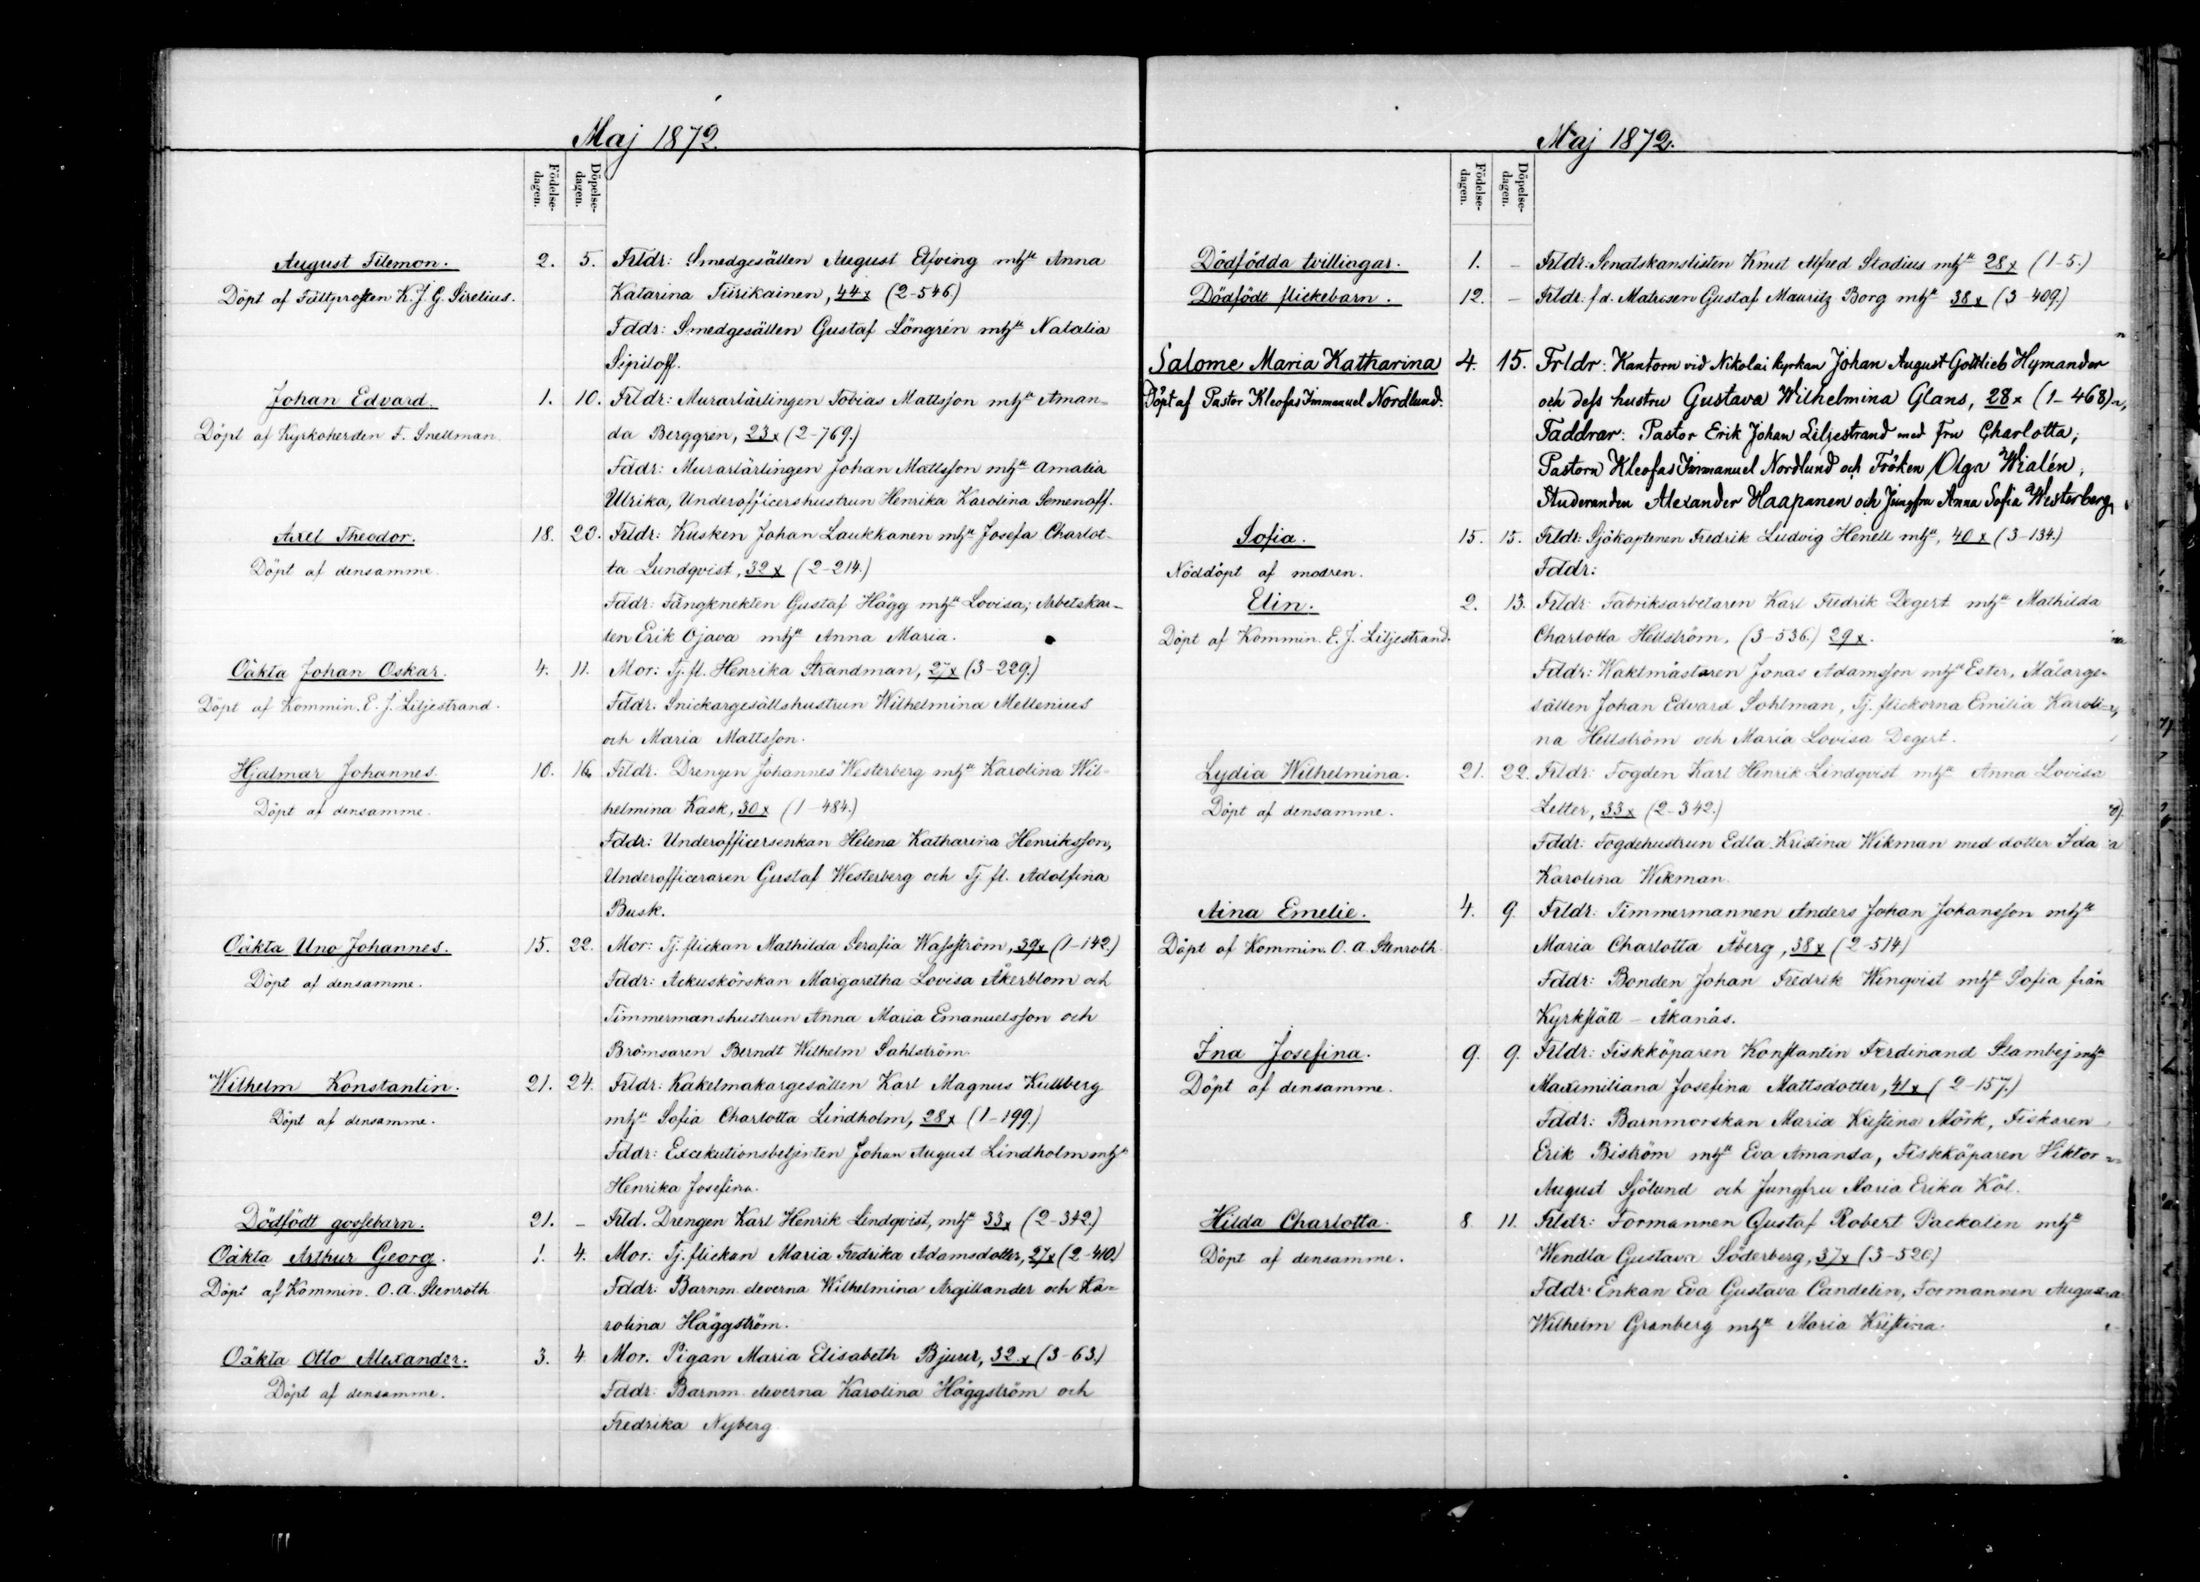 Maj 1872.
Födelse-dagen.
Döpelse-dagen.
August Filemon. 2. 5. Frldr: Smedgesällen August Elfving mhu Anna
Döpt af Fältprosten K. J. G. Sirelius. Katarina Tiirikainen, 44x (2-546)
Fddr: Smedgesällen Gustaf Löngrén mhu Natalia
Sipiloff.
Johan Edvard. 1. 10. Frldr: Murarlärlingen Tobias Mattsson mhu Aman-
Döpt af Kyrkoherden F. Snellman. da Berggrén, 23x (2-769.)
Fddr: Murarlärlingen Johan Mattsson mhu Amalia
Ulrika, Underofficershustrun Henrika Karolina Semenoff.
Axel Theodor. 18. 20. Frldr: Kusken Johan Laukkanen mhu Josefa Charlot-
Döpt af densamme. ta Lundqvist, 32x (2-214.)
Fddr: Fångknekten Gustaf Hägg mhu Lovisa; Arbetskar-
len Erik Ojava mhu Anna Maria.
Oäkta Johan Oskar. 4. 11. Mor: Tj. fl. Henrika Strandman, 27x (3-229.)
Döpt af Kommin. E. J. Liljestrand. Fddr. Snickargesällshustrun Wilhelmina Mellenius
och Maria Mattsson.
Hjalmar Johannes. 10. 16. Frldr. Drengen Johannes Westerberg mhu Karolina Wil-
Döpt af densamme. helmina Kask, 30x (1-484.)
Fddr: Underofficersenkan Helena Katharina Henriksson,
Underofficeraren Gustaf Westerberg och Tj. fl. Adolfina
Busk.
Oäkta Uno Johannes. 15. 22. Mor: Tj. flickan Mathilda Serafia Wasström, 39x (1-142)
Döpt af densamme. Fddr: Ackuskörskan Margaretha Lovisa Åkerblom och
Timmermanshustrun Anna Maria Emanuelsson och
Brömsaren Berndt Wilhelm Sahlström.
Wilhelm Konstantin. 21. 24. Frldr: Kakelmakargesällen Karl Magnus Kullberg
Döpt af densamme. mhu Sofia Charlotta Lindholm, 28x (1-199.)
Fddr: Excekutionsbetjenten Johan August Lindholm mhu
Henrika Josefina.
Dödfödt gossebarn. 21. – Frld. Drengen Karl Henrik Lindqvist, mhu 33x (2-342.)
Oäkta Arthur Georg. 1. 4. Mor: Tj. flickan Maria Fredrika Adamsdotter, 27x (2-410.)
Döpt af Kommin. O. A. Stenroth Fddr: Barnm. eleverna Wilhelmina Argillander och Ka-
rolina Häggström.
Oäkta Otto Alexander. 3. 4. Mor. Pigan Maria Elisabeth Bjurer, 32x (3-63.)
Döpt af densamme. Fddr: Barnm. eleverna Karolina Häggström och
Fredrika Nyberg
Maj 1872.
Födelse-dagen.
Döpelse-dagen.
Dödfödda tvillingar. 1. – Frldr: Senatskanslisten Knut Alfred Stadius mhu 28x (1-5.)
Dödfödt flickebarn. 12. – Frldr. f.d. Matrosen Gustaf Mauritz Borg mhu 38x (3-409.)
Salome Maria Katharina 4. 15. Frldr: Kantorn vid Nikolai kyrkan Johan August Gottlieb Hymander
Döpt af Pastor Kleofas Immanuel Nordlund. och dess hustru Gustava Wilhelmina Glans, 28x (1-468)
Faddrar: Pastor Erik Johan Liljestrand med fru Charlotta;
Pastorn Kleofas Immanuel Nordlund och Fröken Olga Wialén,
Studeranden Alexander Haapanen och Jungfru Anna Sofia Westerberg
Sofia. 15. 15. Frldr: Sjökaptenen Fredrik Ludvig Henell mhu, 40x (3-134.)
Nöddöpt af modren. Fddr:
Elin. 2. 13. Frldr: Fabriksarbetaren Karl Fredrik Degert mhu Mathilda
Döpt af Kommin. E. J. Liljestrand. Charlotta Hellström, (3-536.) 29x.
Fddr: Waktmästaren Jonas Adamsson mhu Ester, Målarge-
sällen Johan Edvard Sohlman, Tj. flickorna Emilia Karoli-
na Hellström och Maria Lovisa Degert.
Lydia Wilhelmina. 21. 22. Frldr: Fogden Karl Henrik Lindqvist mhu Anna Lovisa
Döpt af densamme. Zetter, 33x (2-342.)
Fddr: Fogdehustrun Edla Kristina Wikman med dotter Ida
Karolina Wikman.
Aina Emelie. 4. 9. Frldr: Timmermannen Anders Johan Johansson mhu
Döpt af Kommin. O. A. Stenroth Maria Charlotta Åberg, 38x (2-514)
Fddr: Bonden Johan Fredrik Winqvist mhu Sofia från
Kyrkslätt – Åkanäs.
Ina Josefina. 9. 9. Frldr: Fiskköparen Konstantin Ferdinand Stambej mhu
Döpt af densamme. Maximiliana Josefina Mattsdotter, 41x (2-157.)
Fddr: Barnmorskan Maria Kristina Mörk, Fiskaren
Erik Biström mhu Eva Amanda, Fiskköparen Viktor
August Sjölund och Jungfru Maria Erika Köl.
Hilda Charlotta. 8. 11. Frldr: Formannen Gustaf Robert Packalén mhu
Döpt af densamme. Wendla Gustava Söderberg, 37x (3-520.)
Fddr: Enkan Eva Gustava Candelin, Formannen August
Wilhelm Granberg mhu Maria Kristina.